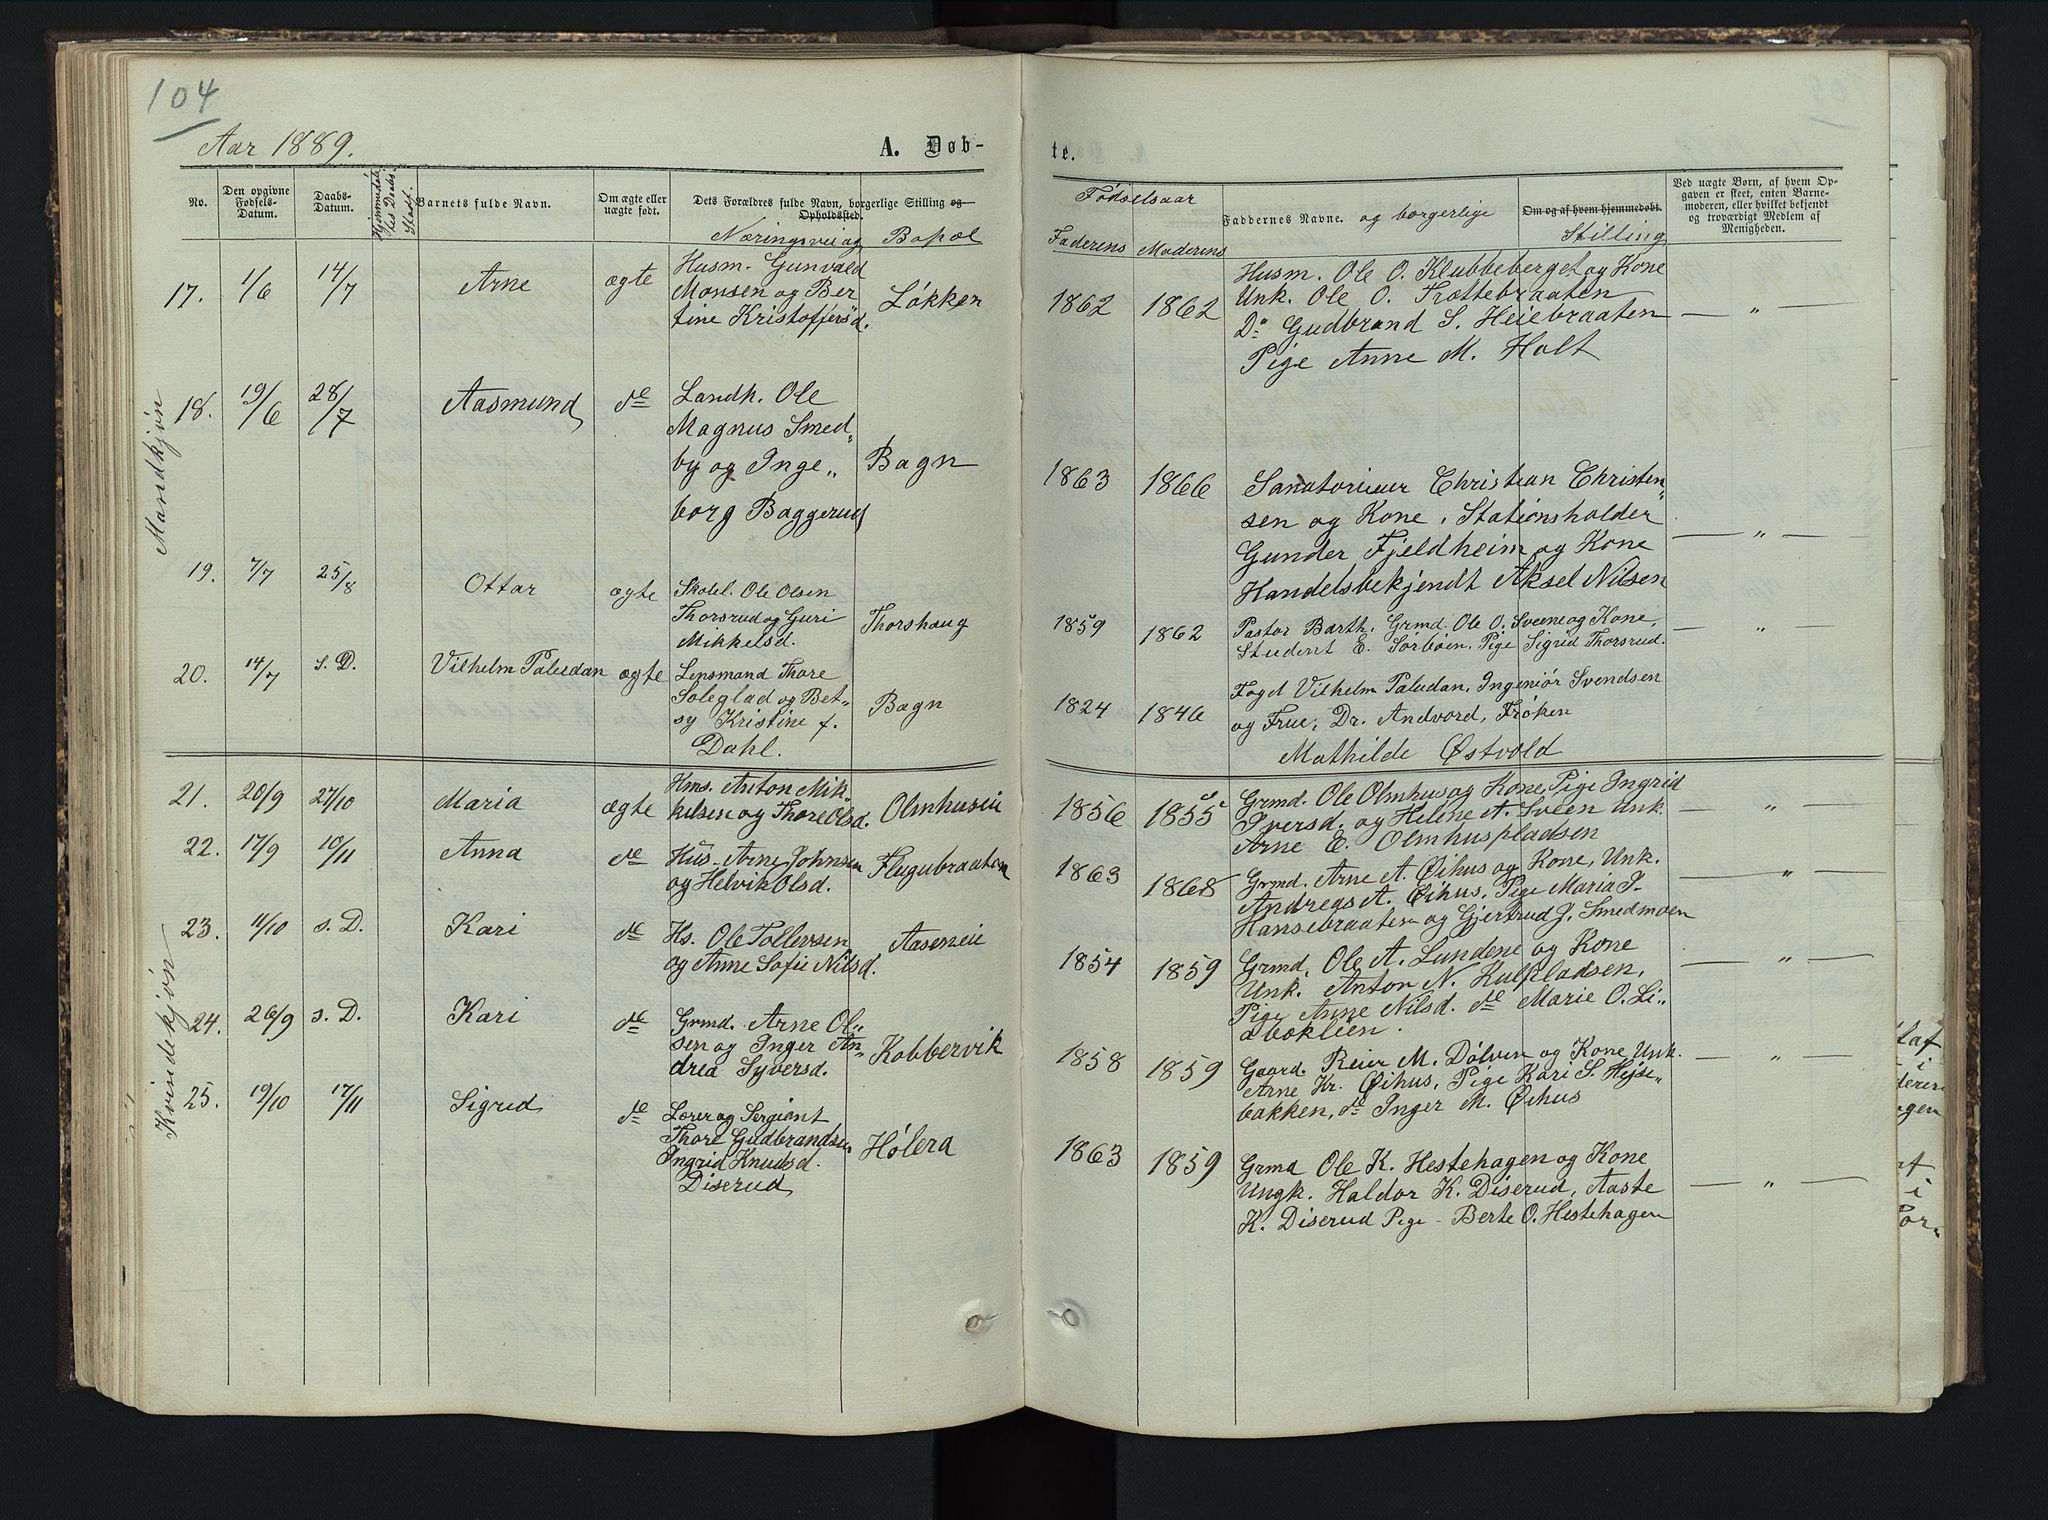 104
Aar 1889.
A. Døb-
te.
No.
Den opgivne Fødsels-Datum.
Daabs-Datum.
Barnets fulde Navn.
Om ægte eller uægte født.
Dets Forældres fulde Navn, borgerlige Stilling og Opholdssted.
Næringsvei og Bopæl
Fødselsaar
Faderens Moderens
Faddernes Navne. og borgerlige Stilling
Om og af hvem hjemmedøbt.
Ved uægte Børn, af hvem Op-
gaven er skeet, enten Barne-
moderen, eller hvilket bekjendt
og troværdigt Medlem af
Menigheden.
Mandkjøn
17. 1/6 14/7 Arne ægte
Husm. Gunvald
Monsen og Ber
tine Kristoffersd.
Løkken
1862 1862
Husm. Ole O. Klubbeberget og Kone
Unk. Ole O. Trøttebraaten
Do Gudbrand S. Heiebraaten
Pige Anne M. Holt
— " —
18. 19/6 28/7 Aasmund de
Landh. Ole
Magnus Smed„
by og Inge„
borg Baggerud
Bagn
1863 1866
Sanatorieier Christian Christen„
sen og Kone, Stationsholder
Gunder Fjeldheim og Kone
Handelsbekjendt Aksel Nilsen
— " —
19. 7/7 25/8 Ottar ægte
Skolel. Ole Olsen
Thorsrud og Guri
Mikkelsd.
Thorshaug
1859 1862
Pastor Barth, Grmd. Ole O. Sveene og Kone,
Student E. Sørbøen, Pige Sigrid Thorsrud.
— " —
20. 14/7 s. D. Vilhelm Paludan ægte
Lensmand Thore
Soleglad og Bet-
sy Kristine f.
Dahl.
Bagn
1824 1846
Fogd Vilhelm Paludan, Ingeniør Svendsen
og Frue, Dr. Andvord, Frøken
Mathilde Østvold
Kvindekjøn
21. 20/9 27/10 Maria ægte
Hms. Anton Mik„
kelsen og Thore Olsd.
Olmhuseie
1856 1855
Grmd. Ole Olmhus og Kone, Pige Ingrid
Iversd. og Helene A. Sveen Unk.
Arne E. Olmhuspladsen
— " —
22. 17/9 10/11 Anna de
Hus. Arne Johnsen
og Helvik Olsd.
Flugubraaten
1863 1868
Grmd. Arne A. Øihus og Kone, Unk.
Andreas A. Øihus, Pige Maria P.
Hansebraaten og Gjertrud J. Smedmoen
— " —
23. 11/10 s. D. Kari de
Hs. Ole Tollevsen
og Anne Sofie Nilsd.
Aaseneie
1854 1859
Grmd. Ole A. Lundene og Kone
Unk. Anton N. Kulpladsen,
Pige Anne Nilsd. de Marie O. Li„
abøklien.
— " —
24. 26/9 s. D. Kari de
Grmd. Arne Ol„
sen og Inger An„
drea Syversd.
Kobbervik
1858 1859
Gaard. Reier M. Dølven og Kone Unk.
Arne Kr. Øihus, Pige Kari S. Hejse„
bakken, de Inger M. Øihus
— " —
25. 19/10 17/11 Sigrid de
Lærer og Sergiant
Thore Gudbrandsen
Ingrid Knudsd.
Diserud
Hølera
1863 1859
Grmd Ole K. Hestehagen og Kone
Ungk. Haldor K. Diserud, Aaste
K. Diserud Pige - Berte O. Hestehagen
— " —